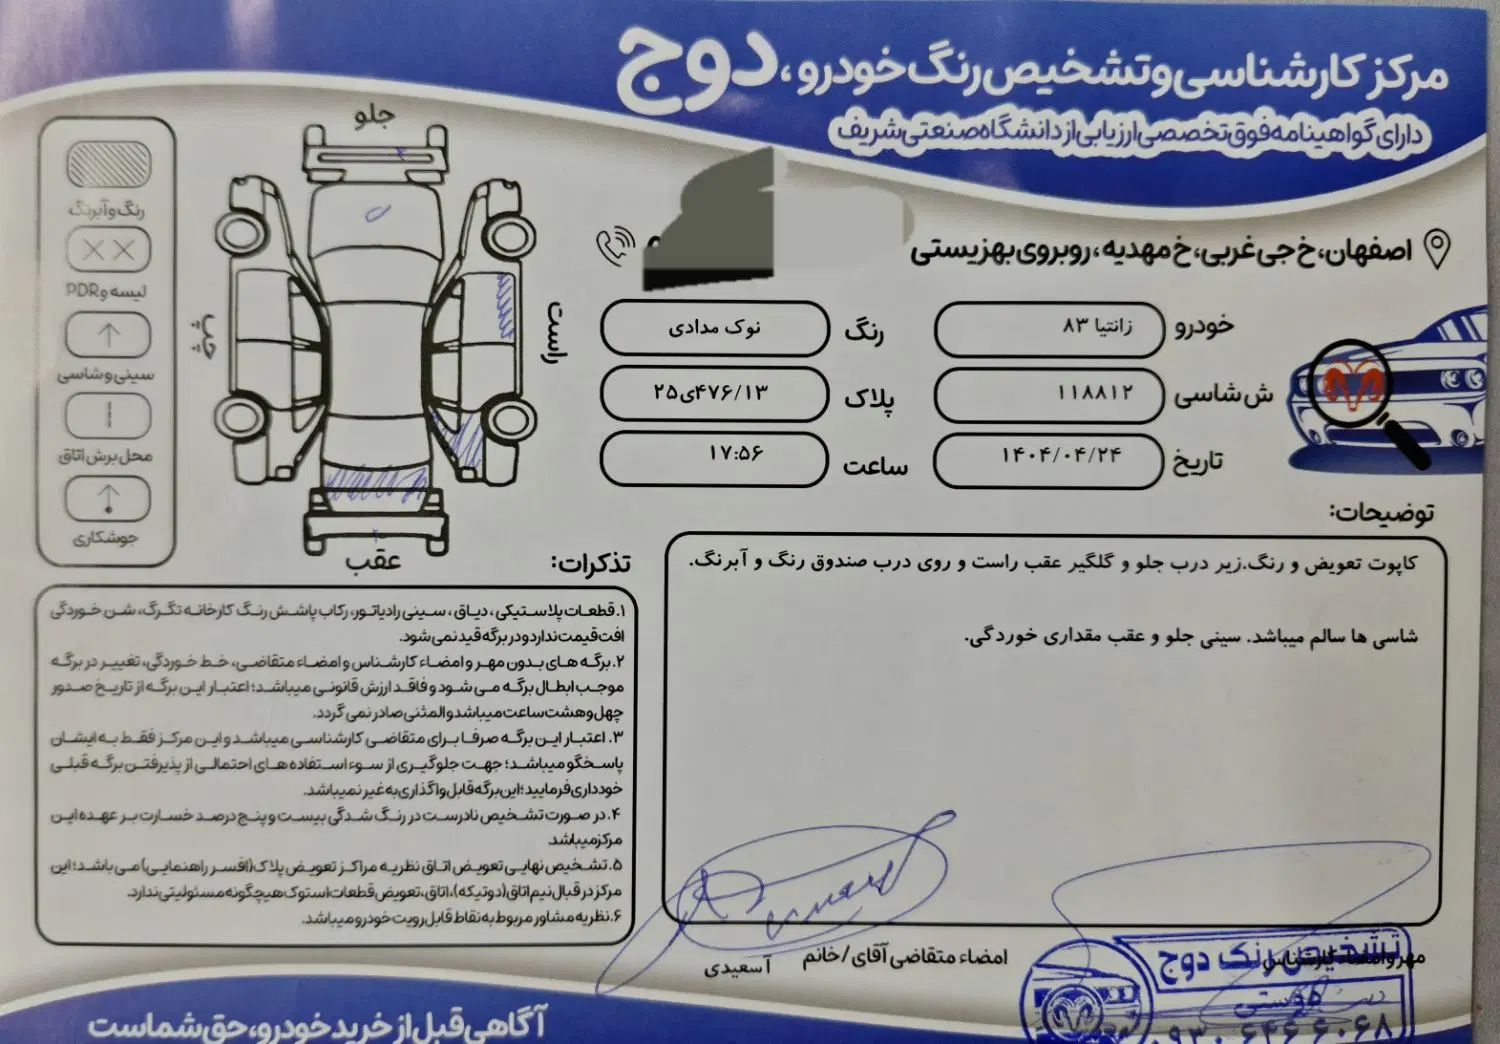 مرکز کارشناسی و تشخیص رنگ خودرو، دوج
دارای گواهینامه فوق تخصصی ارزیابی از دانشگاه صنعتی شریف
اصفهان، خ جی غربی، خ مهدیه، روبروی بهزیستی
خودرو زانتیا ۸۳ رنگ نوک مدادی
ش شاسی ۱۱۸۸۱۲ پلاک ۴۷۶/۱۳ی۲۵
تاریخ ۱۴۰۴/۰۴/۲۴ ساعت ۱۷:۵۶
توضیحات:
کاپوت تعویض و رنگ.زیر درب جلو و گلگیر عقب راست و روی درب صندوق رنگ و آبرنگ.
شاسی ها سالم میباشد. سینی جلو و عقب مقداری خوردگی.
جلو
راست
چپ
عقب
رنگ و آبرنگ
لیسه و PDR
سینی و شاسی
محل برش اتاق
جوشکاری
تذکرات:
۱. قطعات پلاستیکی، دیاق، سینی رادیاتور، رکاب پاشش رنگ کارخانه تگرگ، شن خوردگی
افت قیمت ندارد و در برگه قید نمی شود.
۲. برگه های بدون مهر و امضاء کارشناس و امضاء متقاضی، خط خوردگی، تغییر در برگه
موجب ابطال برگه می شود و فاقد ارزش قانونی میباشد؛ اعتبار این برگه از تاریخ صدور
چهل و هشت ساعت میباشد و المثنی صادر نمی گردد.
۳. اعتبار این برگه صرفا برای متقاضی کارشناسی میباشد و این مرکز فقط به ایشان
پاسخگو میباشد؛ جهت جلوگیری از سوء استفاده های احتمالی از پذیرفتن برگه قبلی
خودداری فرمایید؛ این برگه قابل واگذاری به غیر نمیباشد.
۴. در صورت تشخیص نادرست در رنگ شدگی بیست و پنج درصد خسارت بر عهده این
مرکز میباشد.
۵. تشخیص نهایی تعویض اتاق نظریه مراکز تعویض پلاک (افسر راهنمایی) می باشد؛ این
مرکز در قبال نیم اتاق (دو تیکه)، اتاق، تعویض قطعات استوک هیچگونه مسئولیتی ندارد.
۶. نظریه مشاور مربوط به نقاط قابل رویت خودرو میباشد.
مهر و امضاء کارشناس
امضاء متقاضی آقای/خانم آسعیدی
تشخیص رنگ دوج
آگاهی قبل از خرید خودرو، حق شماست